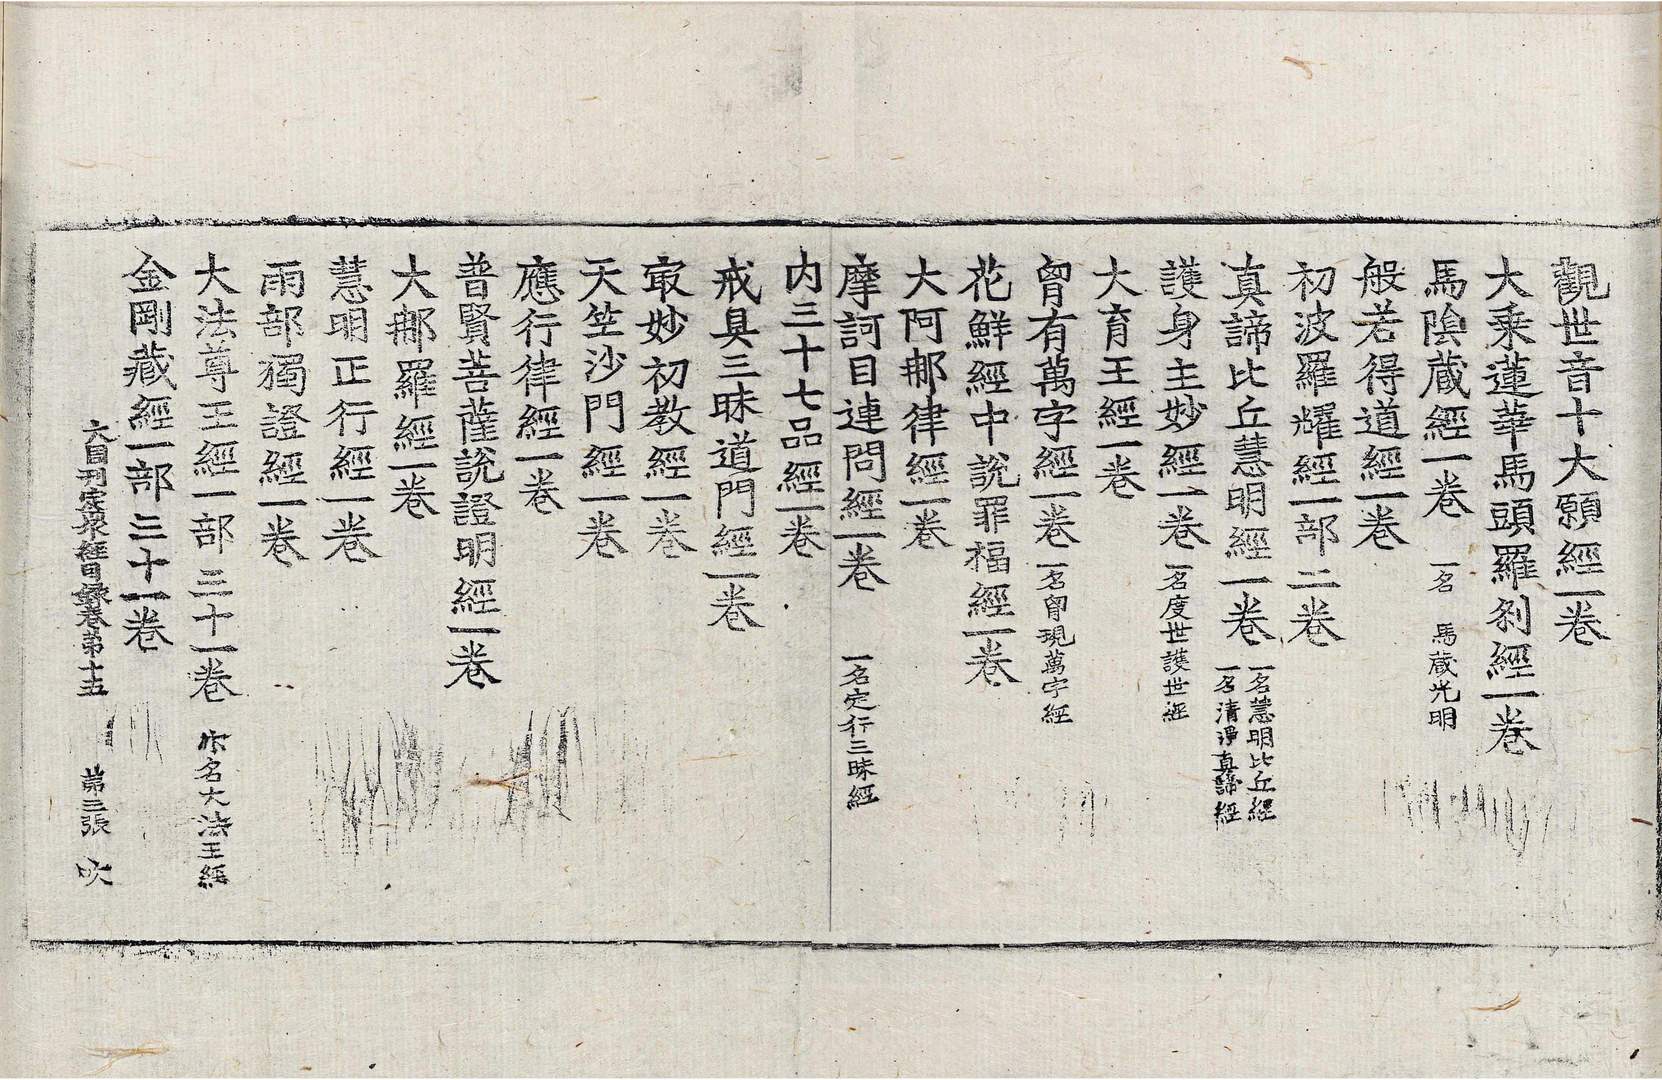 觀世音十大願經一卷
大乘蓮華馬頭羅刹經一卷
馬陰藏經一卷 一名 馬藏光明
般若得道經一卷
初波羅耀經一部 二卷
真諦比丘慧明經一卷 一名慧明比丘經
一名清淨真諦經
護身主妙經一卷 一名度世護世經
大育王經一卷
胷有萬字經一卷 一名胷現萬字經
花鮮經中說罪福經一卷
大阿那律經一卷
摩訶目連問經一卷 一名定行三昧經
內三十七品經一卷
戒具三昧道門經一卷
㝡妙初教經一卷
天竺沙門經一卷
應行律經一卷
普賢菩薩說證明經一卷
大那羅經一卷
慧明正行經一卷
兩部獨證經一卷
大法尊王經一部 三十一卷 亦名大法王經
金剛藏經一部 三十一卷
大周刊定衆經目錄卷第十五 第三張 吹